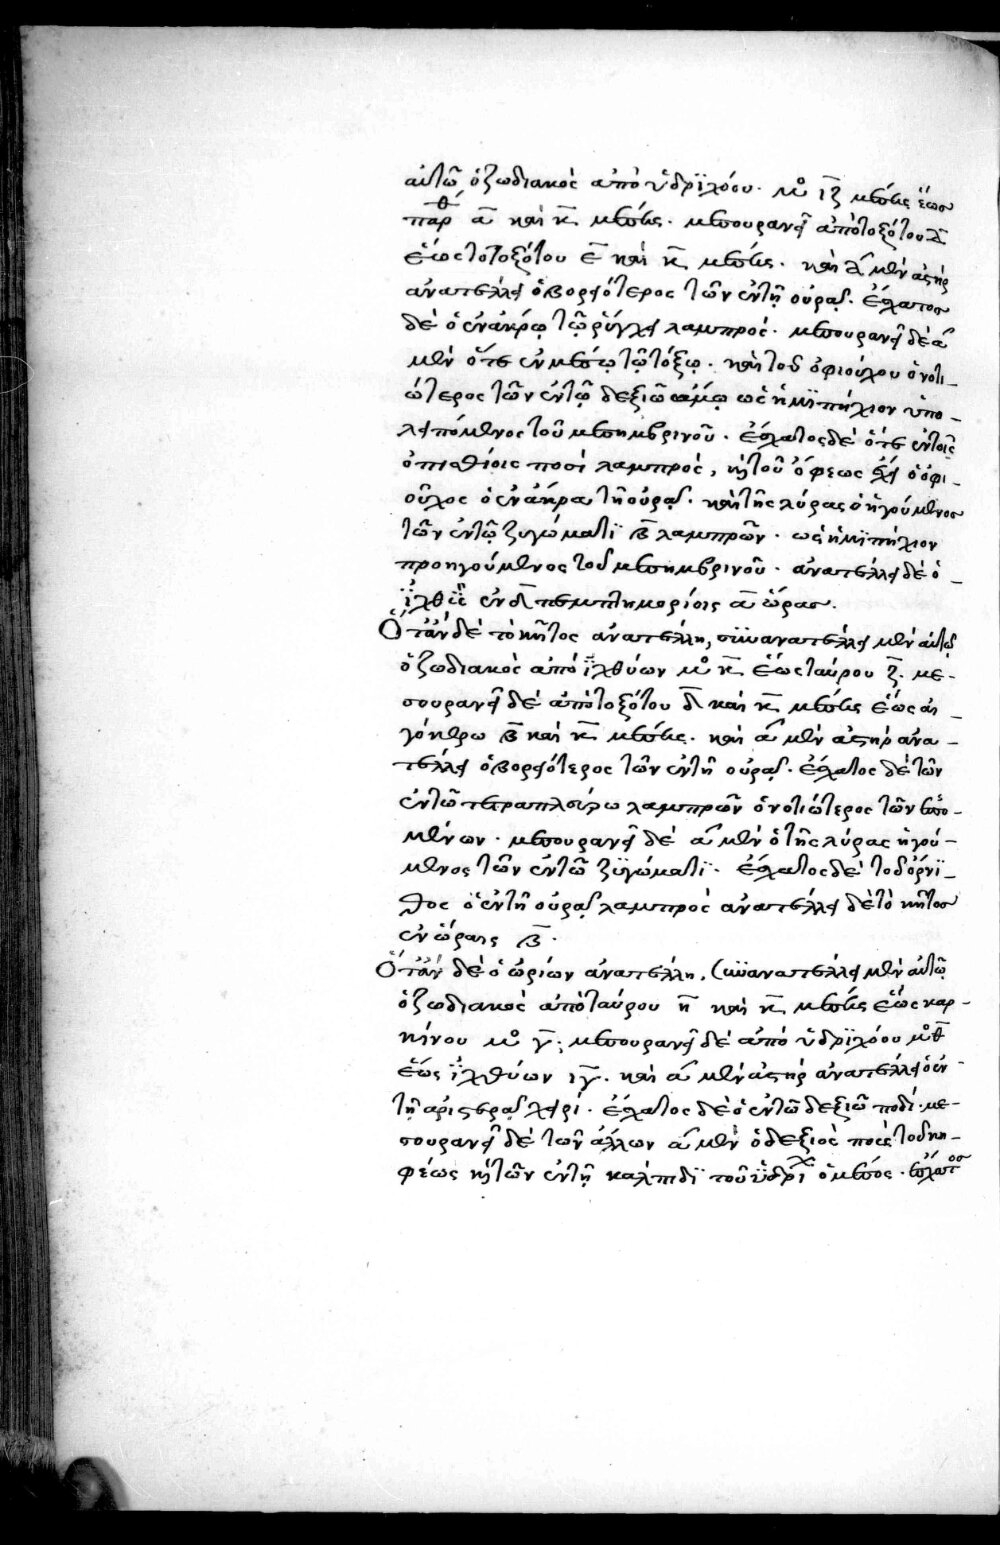 αὐτῶ ὁ ζωδιακὸς ἀπὸ ὑδρϊχόου. μο ιζ μέσης ἕως
παρθ α καὶ κ μέσης. μεσουρανεῖ ἀπὸ τοξότου δ
ἕως τοξότου ε καὶ κ μέσης. καὶ α μὲν ἀστὴρ
ἀνατέλλει ὁ βορειότερος τῶν ἐν τῇ οὐρᾷ. ἔσχατος
δὲ ὁ ἐν ἄκρῳ τῷ ῥύγχει λαμπρός. μεσουρανεῖ δὲ α
μὲν ὅ τε ἐν μέσῳ τῷ τόξῳ. καὶ τοῦ ὀφιούχου ὁ νοτι-
ώτερος τῶν ἐν τῷ δεξιῶ ὤμῳ ὡς ἡμϊπήχιον ὑπο-
λειπόμενος τοῦ μεσημβρινοῦ. ἔσχατος δὲ ὅ τε ἐν τοῖς
ὀπισθίοις ποσὶ λαμπρὸς, καὶ τοῦ ὄφεως ὃν ἔχει ὁ ὀφι-
οῦχος ὁ ἐν ἄκρα τῇ οὐρᾷ. καὶ τῆς λύρας ὁ ἡγούμενος
τῶν ἐν τῷ ζυγώματϊ β λαμπρῶν. ὡς ἡμϊπήχιον
προηγούμενος τοῦ μεσημβρινοῦ. ἀνατέλλει δὲ ὁ
ϊχθῦς ἐν δ πεμπτημορίοις α ὥρας.
Ὅταν δὲ τὸ κῆτος ἀνατέλλη, συνανατέλλει μὲν αὐτῷ
ὁ ζωδιακὸς ἀπὸ ϊχθύων μο κ ἕως ταύρου ζ. με-
σουρανεῖ δὲ ἀπὸ τοξότου δ καὶ κ μέσης ἕως αἰ-
γόκερω β καὶ κ μέσης. καὶ α μὲν ἀστὴρ ἀνα-
τέλλει ὁ βορειότερος τῶν ἐν τῇ οὐρᾷ. ἔσχατος δὲ τῶν
ἐν τῶ τετραπλεύρω λαμπρῶν ὁ νοτιώτερος τῶν ἑπο-
μένων. μεσουρανεῖ δὲ α μὲν ὁ τῆς λύρας ἡγού-
μενος τῶν ἐν τῶ ζϋγώματϊ. ἔσχατος δὲ τοῦ ὄρνϊ-
θος ὁ ἐν τῇ οὐρᾷ λαμπρὸς ἀνατέλλει δὲ τὸ κῆτος
ἐν ὥραις β.
Ὅταν δὲ ὁ ὠρίων ἀνατέλλη, συνανατέλλει μὲν αὐτῷ
ὁ ζωδιακὸς ἀπὸ ταύρου η καὶ κ μέσης ἕως καρ-
κίνου μο γ· μεσουρανεῖ δὲ ἀπὸ ὑδρϊχόου μο θ
ἕως ϊχθύων ιγ. καὶ α μὲν ἀστὴρ ἀνατέλλει ὁ ἐν
τῇ ἀριστερᾷ χειρί. ἔσχατος δὲ ὁ ἐν τῶ δεξιῶ ποδί. με-
σουρανεῖ δὲ τῶν ἄλλων α μὲν ὁ δεξιὸς ποὺς τοῦ κη-
φέως καὶ τῶν ἐν τῇ κάλπιδϊ τοῦ ὑδρϊχ ὁ μέσος. ἔσχατος